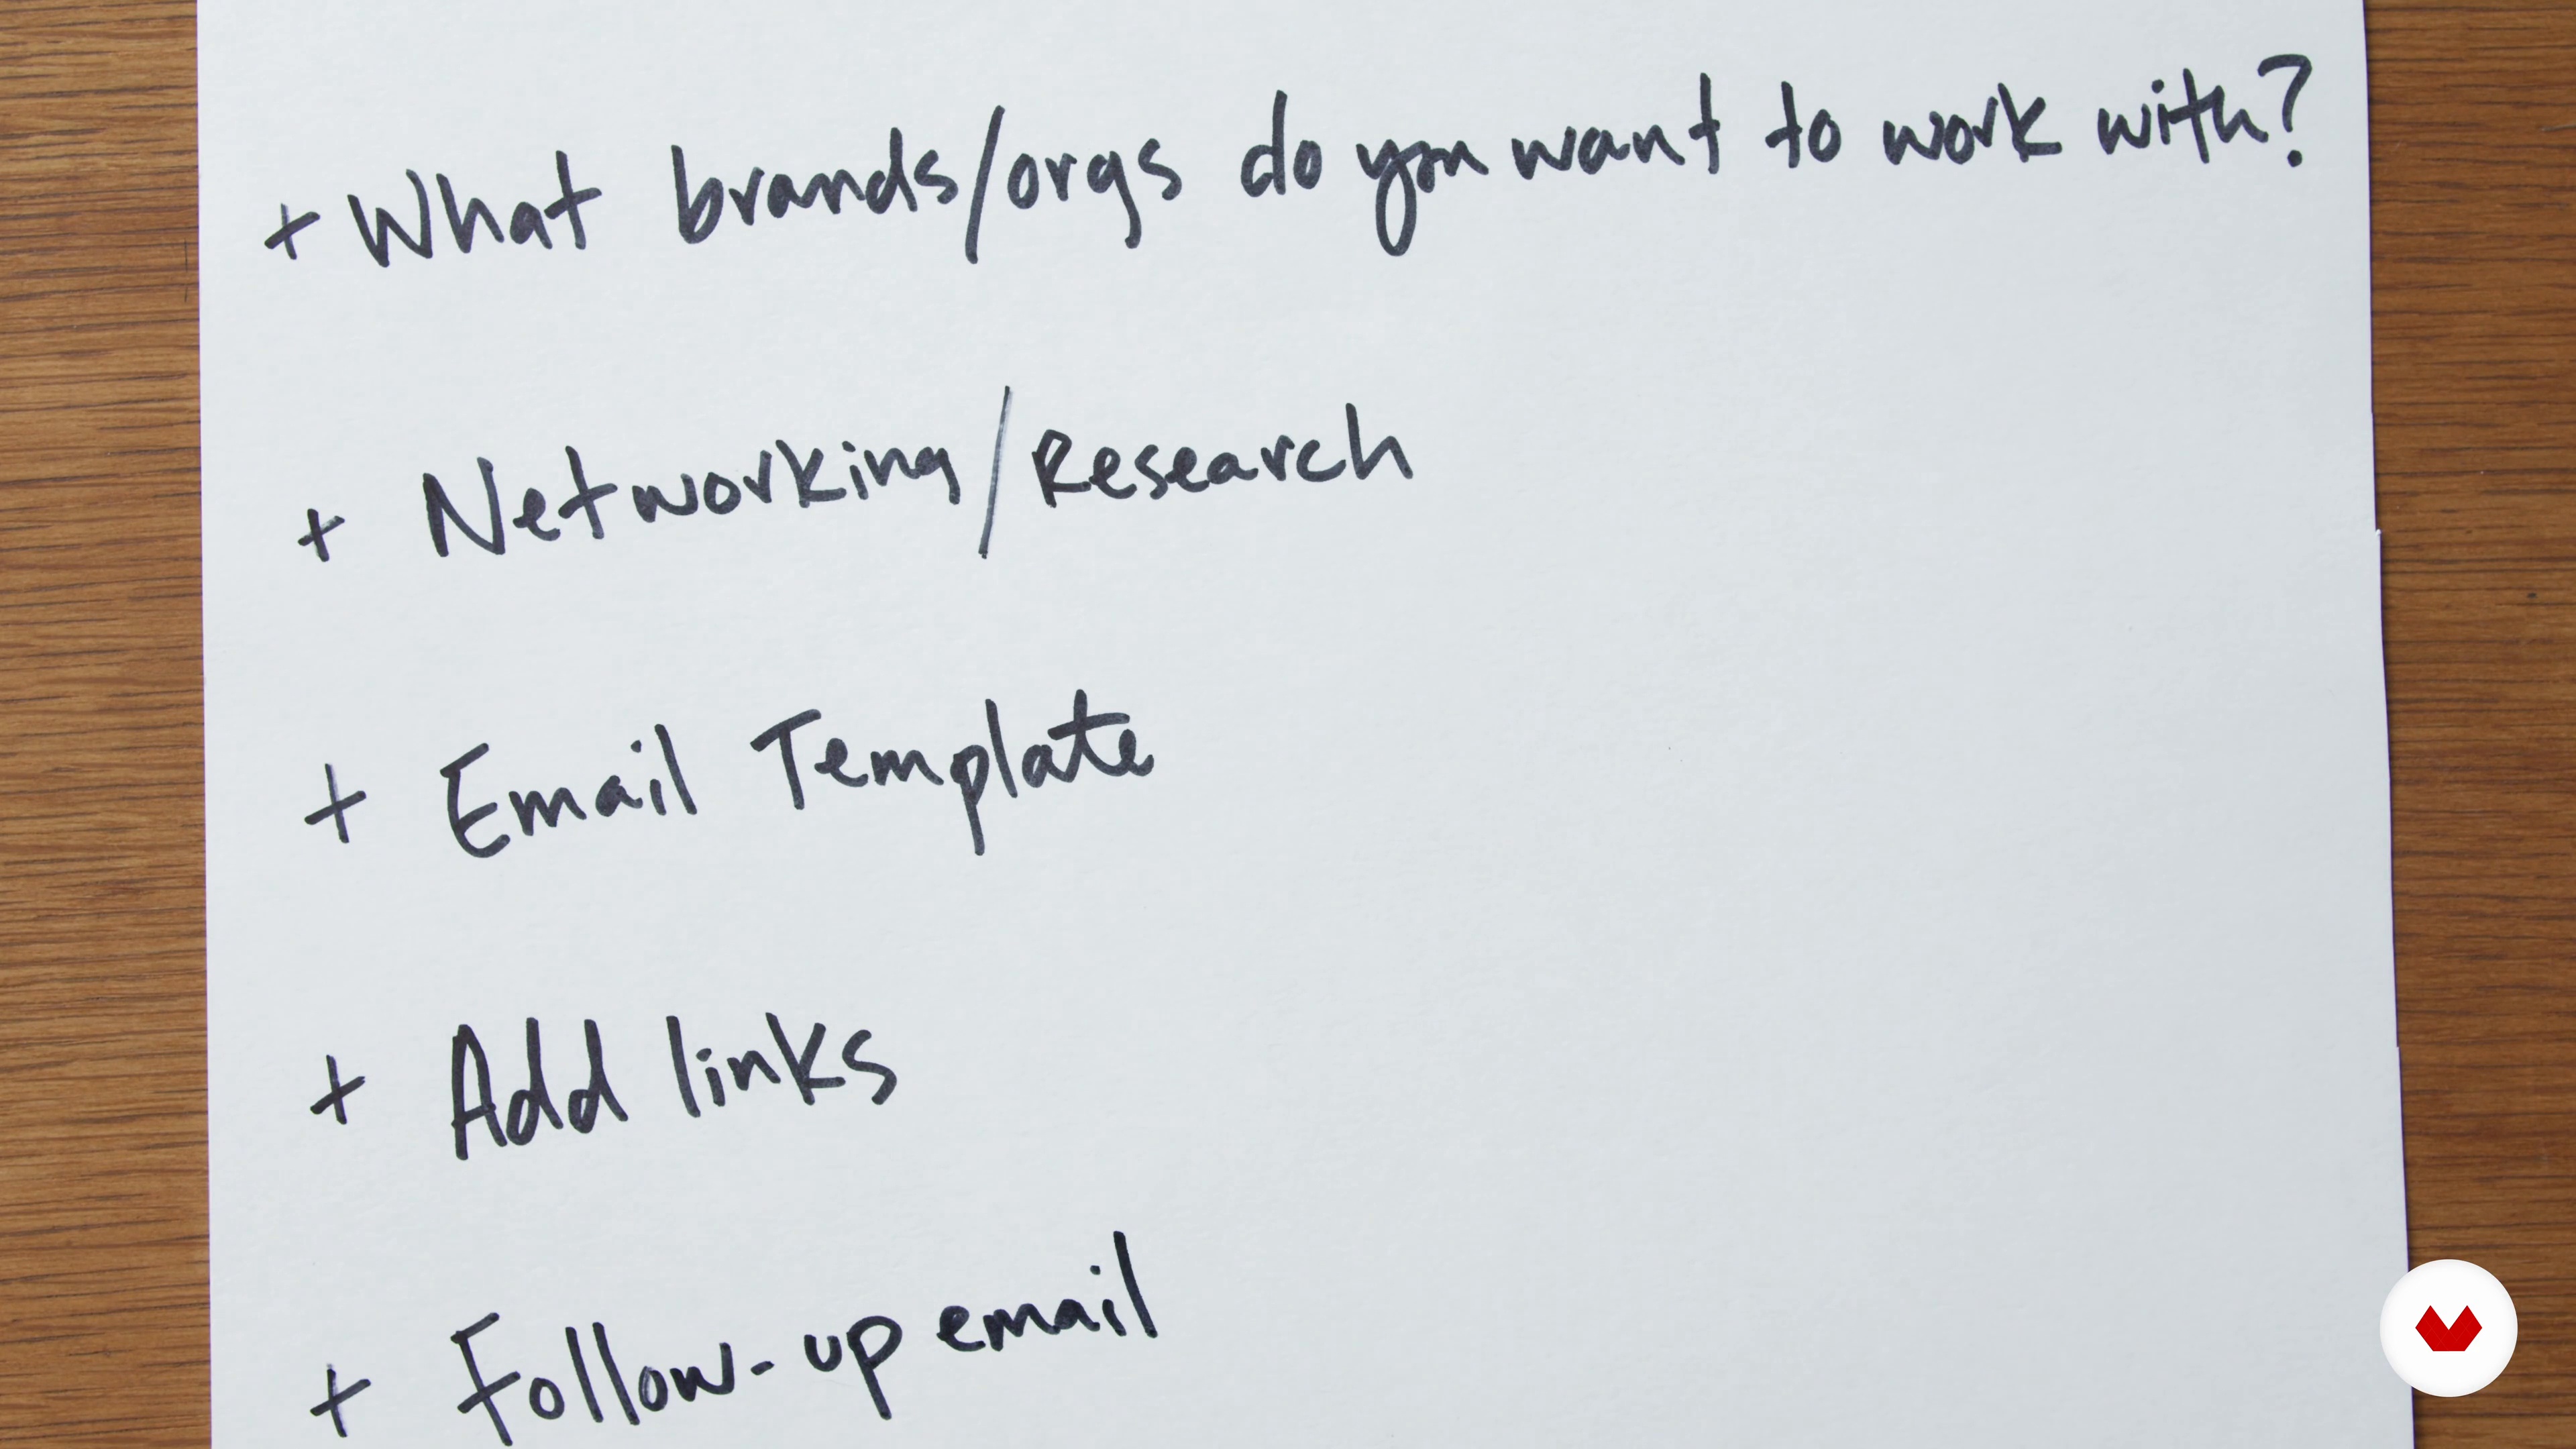 + What brands/orgs do you want to work with?
+ Networking/Research
+ Email Template
+ Add links
+ Follow-up email